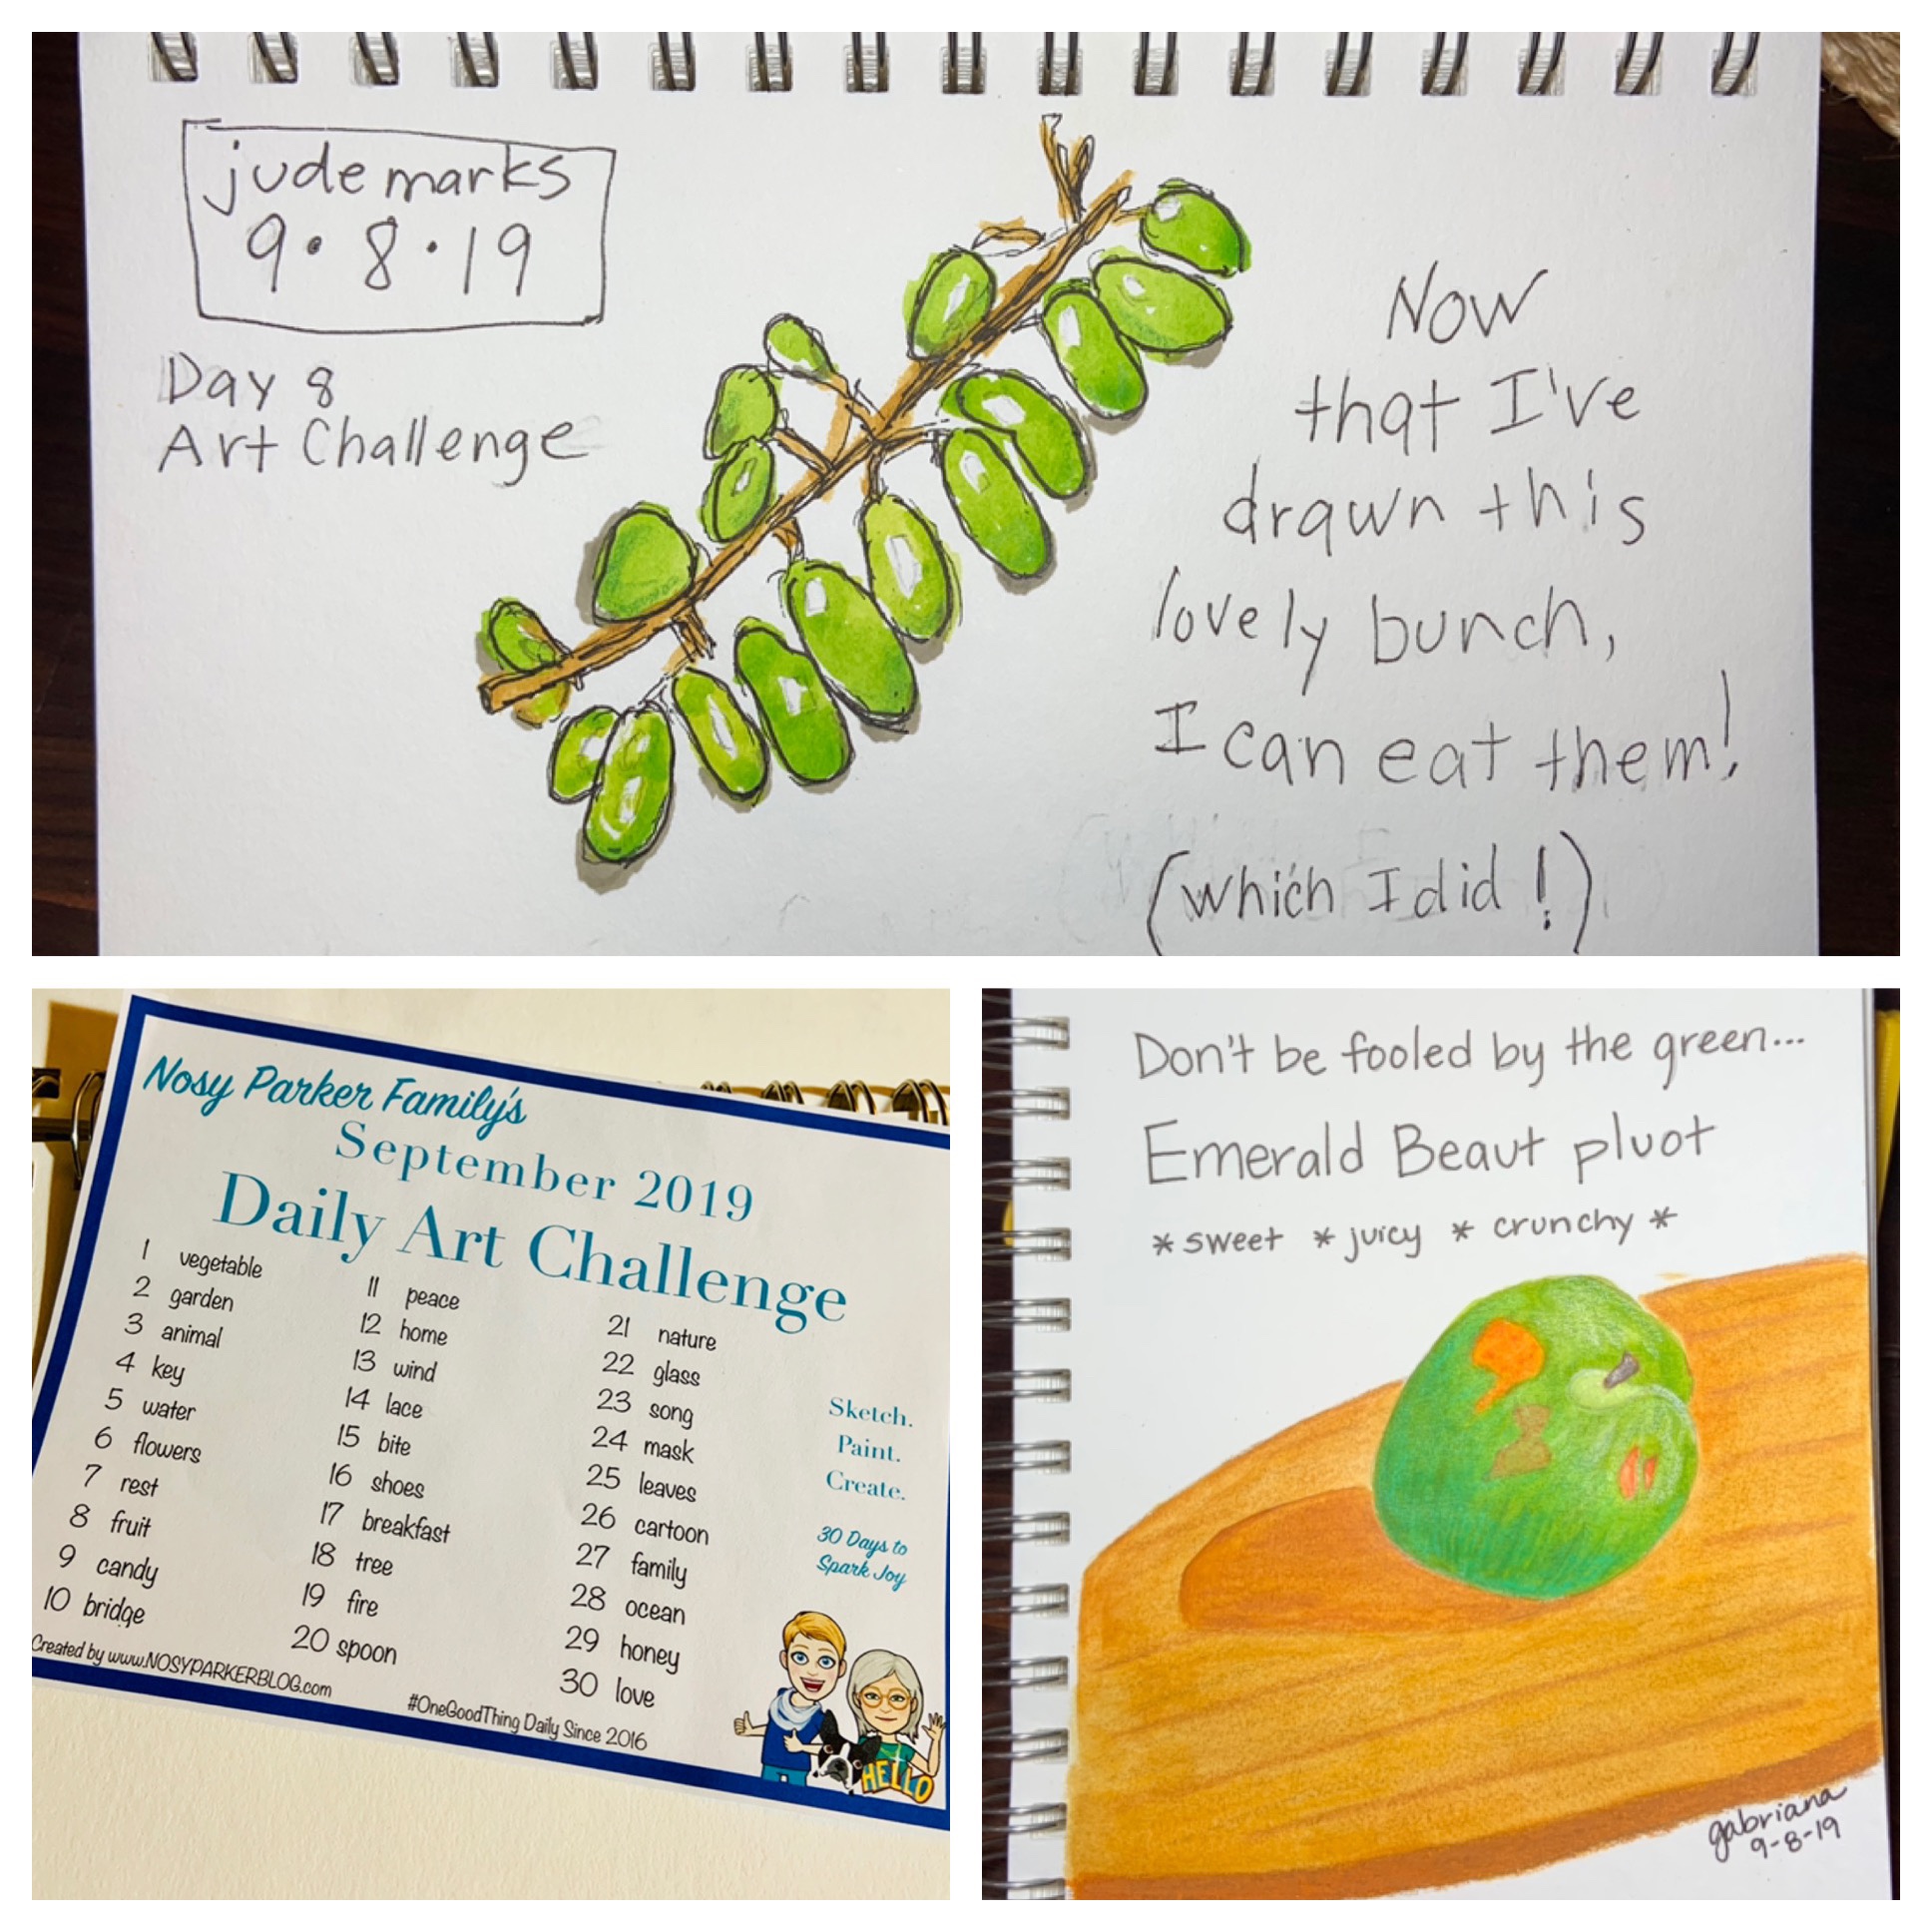 jude marks
9.8.19
Day 8
Art Challenge
Now
that I've
drawn this
lovely bunch,
I can eat them!
(which I did!)
Nosy Parker Family's
September 2019
Daily Art Challenge
1 vegetable
2 garden
3 animal
4 key
5 water
6 flowers
7 rest
8 fruit
9 candy
10 bridge
11 peace
12 home
13 wind
14 lace
15 bite
16 shoes
17 breakfast
18 tree
19 fire
20 spoon
21 nature
22 glass
23 song
24 mask
25 leaves
26 cartoon
27 family
28 ocean
29 honey
30 love
Sketch.
Paint.
Create.
30 Days to
Spark Joy
HELLO
Created by www.NOSYPARKERBLOG.com
#OneGoodThing Daily Since 2016
Don't be fooled by the green...
Emerald Beaut pluot
*sweet *juicy *crunchy*
gabriana
9-8-19